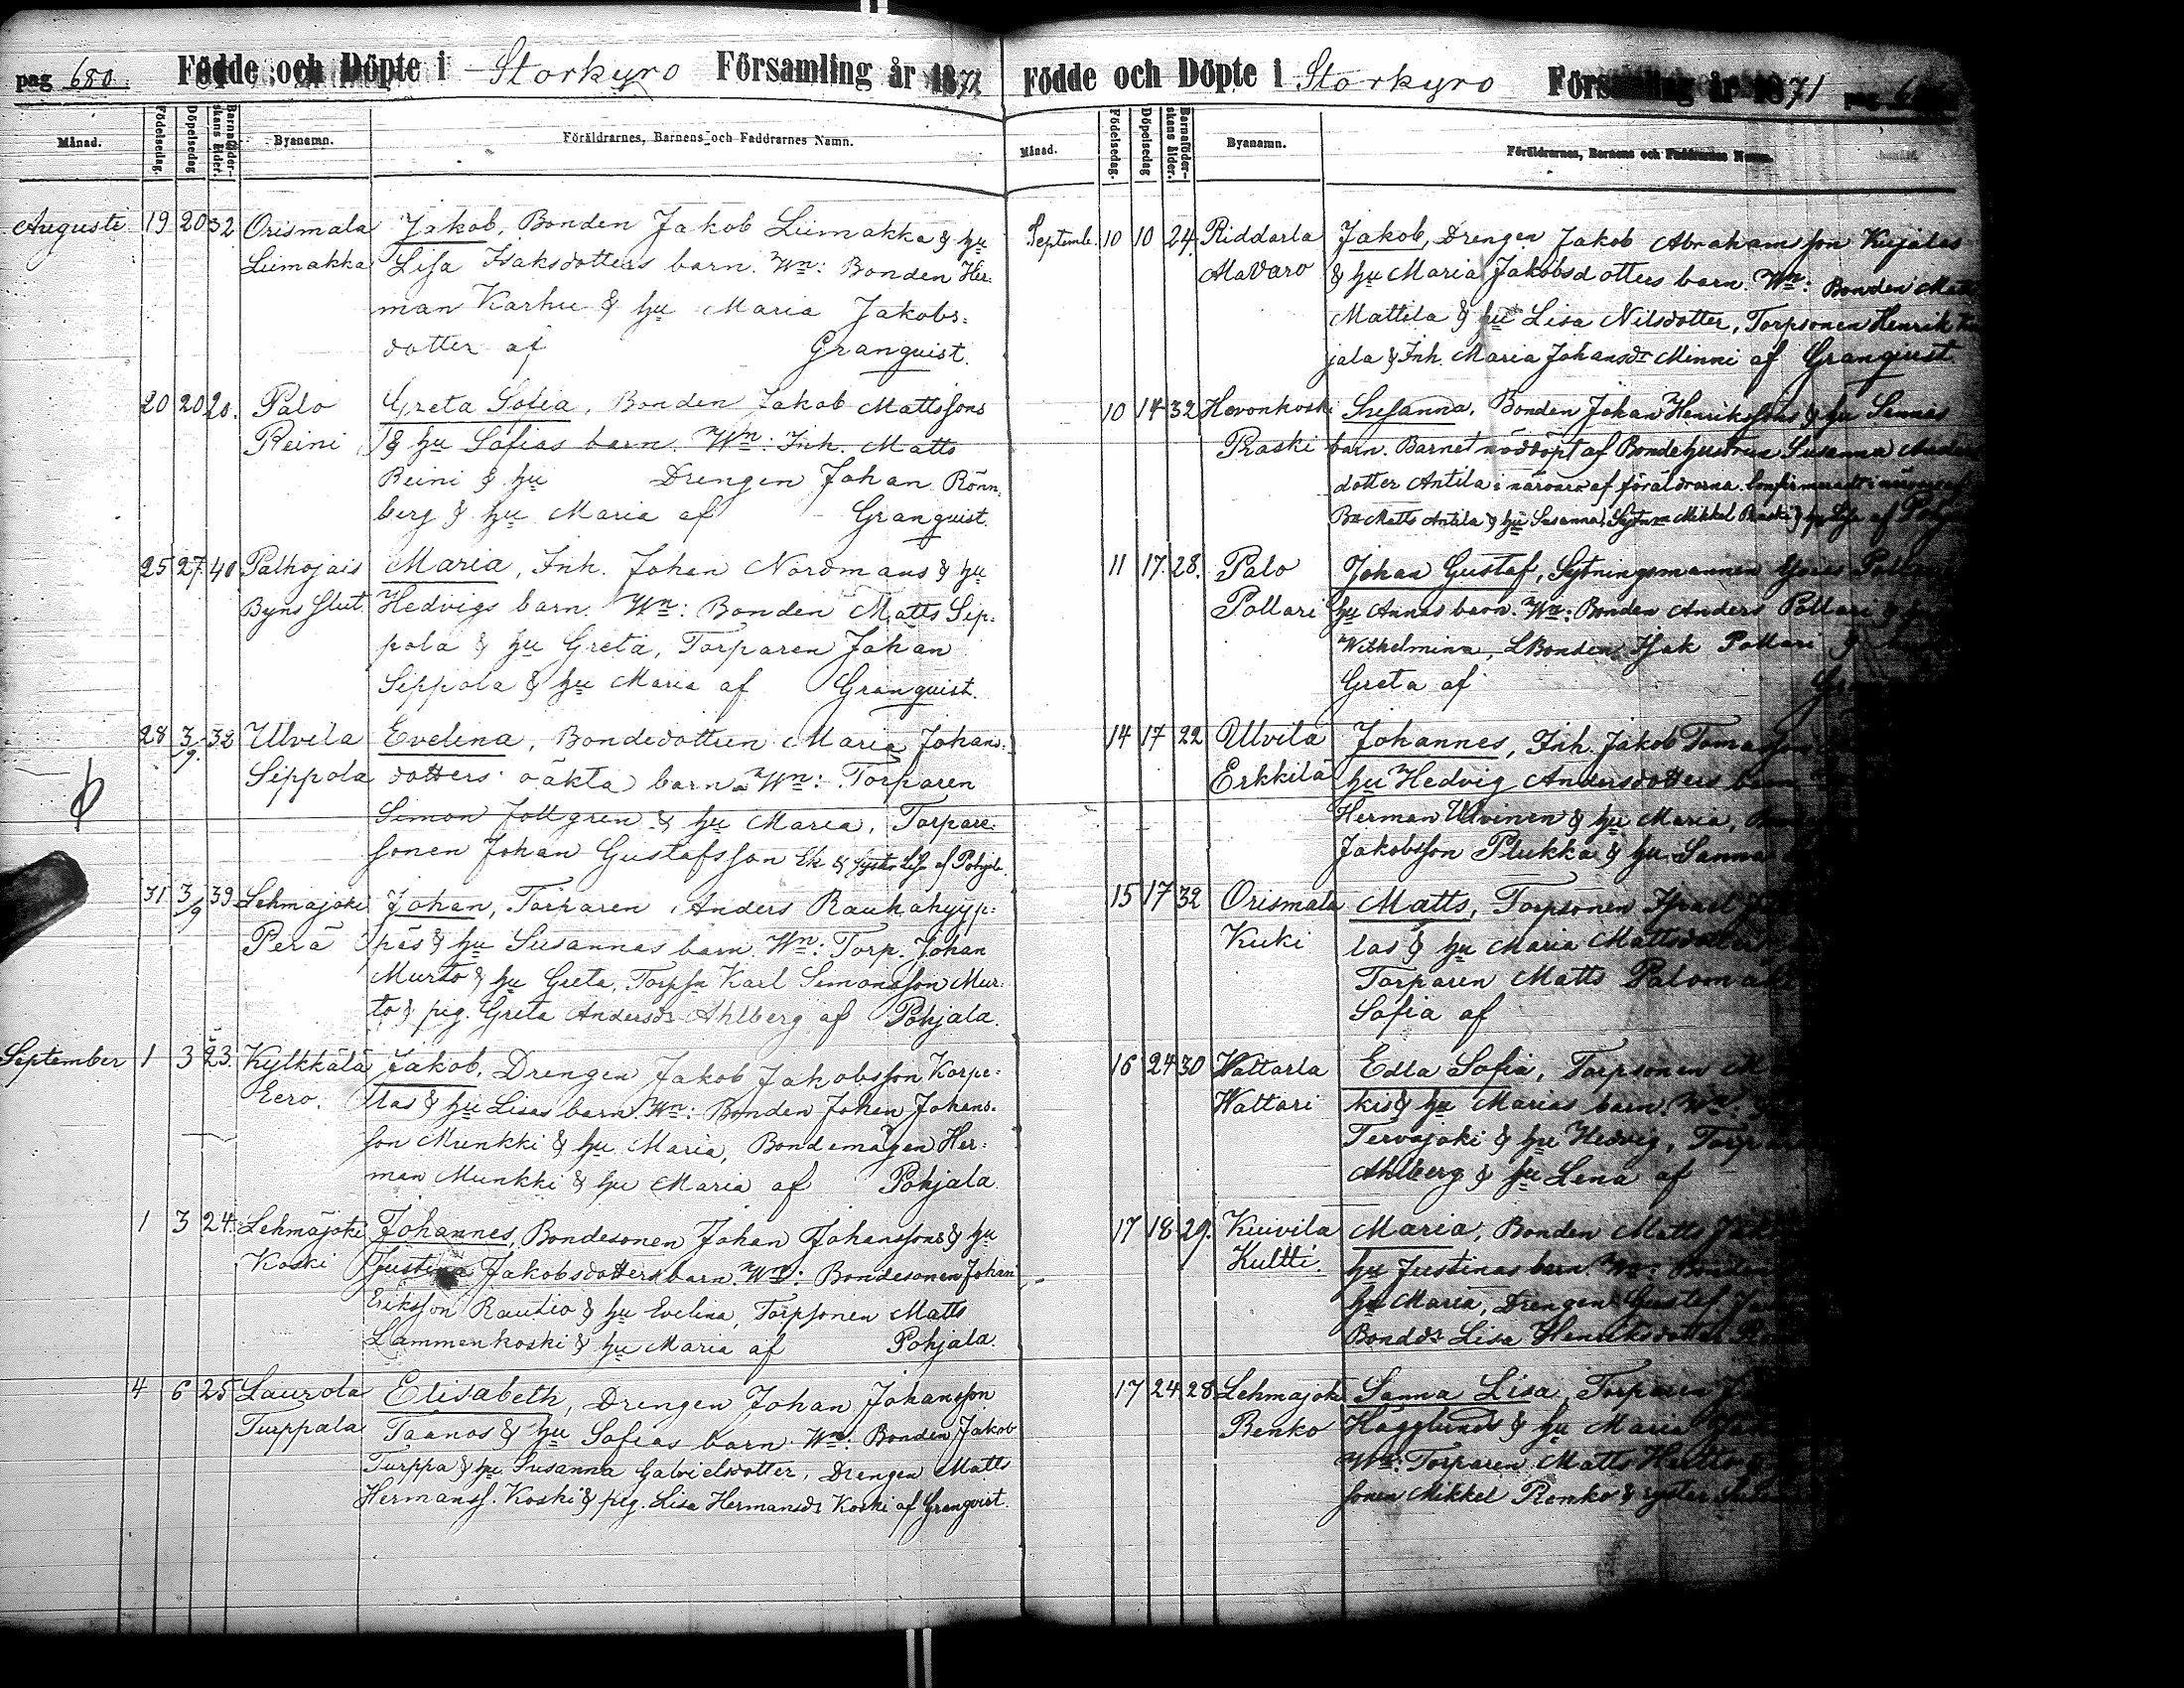 pag 680. Födde och Döpte i Storkyro Församling år 1871
Månad. Födelsedag. Döpelsedag Barnaföder-skans ålder. Byanamn. Föräldrarnes, Barnens och Faddrarnes Namn.
Augusti 19 20 32 Orismala Jakob, Bonden Jakob Liimakka & hu
Liimakka Lisa Isaksdotters barn. Wn: Bonden Her-
man Karhu & hu Maria Jakobs-
dotter af Granquist.
20 20 20. Palo Greta Sofia, Bonden Jakob Mattssons
Reini & hu Sofias barn. Wn: Inh. Matts
Reini & hu Drengen Johan Rönn-
berg & hu Maria af Granquist.
25 27 40 Palhojais Maria, Inh. Johan Nordmans & hu
Byns Slut. Hedvigs barn. Wn: Bonden Matts Sip-
pola & hu Greta, Torparen Johan
Sippola & hu Maria af Granquist.
28 3/9. 32 Ulvila Evelina, Bondedottren Maria Johans-
Sippola dotters oäkta barn. Wn: Torparen
Simon Jollgren & hu Maria, Torpare-
sonen Johan Gustafsson Ek & syster Lisa af Pohjala.
31 3/9 39 Lehmajoki Johan, Torparen Anders Rauhahyyp-
Perä päs & hu Susannas barn. Wn: Torp. Johan
Murto & hu Greta, Torpsn Karl Simonsson Mur-
to & pig. Greta Andersdr Ahlberg af Pohjala.
September 1 3 23. Kylkkälä Jakob, Drengen Jakob Jakobsson Korpe-
Eero. las & hu Lisas barn. Wn: Bonden Johan Johans-
son Munkki & hu Maria, Bondemågen Her-
man Munkki & hu Maria af Pohjala
1 3 24. Lehmäjoki Johannes, Bondesonen Johan Johanssons & hu
Koski Justina Jakobsdotters barn. Wn: Bondesonen Johan
Eriksson Rautio & hu Evelina, Torpsonen Matts
Lammenkoski & hu Maria af Pohjala.
4 6 25 Laurola Elisabeth, Drengen Johan Johansson
Turppala Taanos & hu Sofias barn. Wn: Bonden Jakob
Turppa & hu Susanna Gabrielsdotter, Drengen Matts
Hermanss. Koski & pig. Lisa Hermansdr Koski af Granqvist.
Födde och Döpte i Storkyro Församling år 1871 pag
Månad. Födelsedag. Döpelsedag Barnaföder-skans ålder. Byanamn. Föräldrarnes, Barnens och Faddrarnes Namn.
Septemb. 10 10 24. Riddarla Jakob, Drengen Jakob Abrahamsson Kujalas
Alavaro & hu Maria Jakobsdotters barn. Wn: Bonden
Mattila & hu Lisa Nilsdotter, Torpsonen Henrik Ku
jala & Inh. Maria Johansdr Minni af Granqvist
10 14 32 Hevonkoski Susanna, Bonden Johan Henrikssons & hu Sannas
Praski barn. Barnet nöddöpt af Bondehustrun Susanna Anders
dotter Antila i närvaro af föräldrarna. Confirmeradt i närvaro af
Bn Matts Antila & hu Susanna, Sytn Mikkel Praski & hu Lisa af
11 17. 28. Palo Johan Gustaf, Sytningsmannen
Pollari hu Annas barn. Wn: Bonden Anders Pollari &
Wilhelmina, LBonden Isak Pollari &
Greta af
14 17 22 Ulvila Johannes, Inh. Jakob Tomasson
Erkkilä hu Hedvig Andersdotters barn
Herman Ulvinen & hu Maria,
Jakobsson Plukka & hu Sanna
15 17 32 Orismala Matts, Torpsonen Israel
Kuki las & hu Maria Mattsdotters
Torparen Matts Palomäki
Sofia af
16 24 30 Wattarla Edla Sofia, Torpsonen M
Waltari kis & hu Marias barn. Wn:
Tervajoki & hu Hedvig, Torparen
Ahlberg & hu Lena af
17 18 29. Kuivila Maria, Bonden Matts
Kultti. hu Justinas barn. Wn: Bonden
hu Maria, Drengen Gustaf
Bondds Lisa Henriksdotter
17 24 28 Lehmajoki Sanna Lisa, Torparen
Renko Hägglunds & hu Maria
Wn: Torparen Matts Hertto
sonen Mikkel Renko & syster